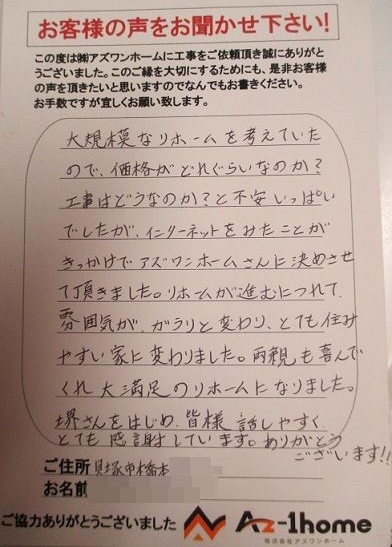 お客様の声をお聞かせ下さい!
この度は㈱アズワンホームに工事をご依頼頂き誠にありがとうございました。このご縁を大切にするためにも、是非お客様の声を頂きたいと思いますのでなんでもお書きください。
お手数ですが宜しくお願い致します。
大規模なリホームを考えていた
ので、価格がどれぐらいなのか?
工事はどうなのか?と不安いっぱい
でしたが、インターネットをみたことが
きっかけでアズワンホームさんに決めさせ
て頂きました。リホームが進むにつれて、
雰囲気が、ガラリと変わり、とても住み
やすい家に変わりました。両親も喜んで
くれ大満足のリホームになりました。
堺さんをはじめ、皆様話しやすく、
とても感謝しています。ありがとう
ございます!!
ご住所 貝塚市橋本
お名前
ご協力ありがとうございました Az-1home
株式会社アズワンホーム